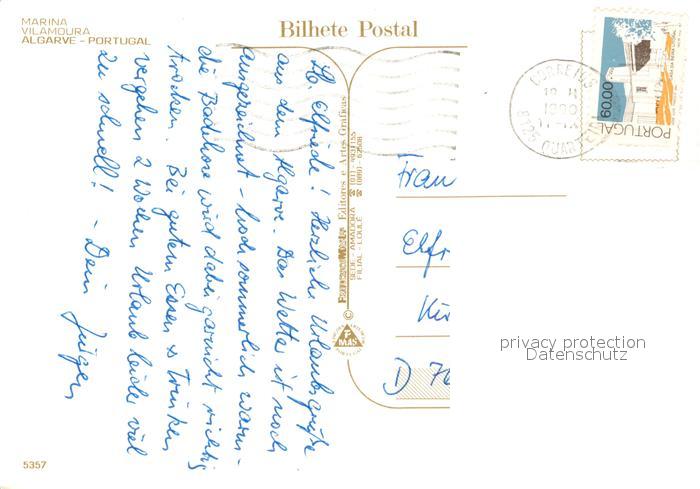 MARINA
VILAMOURA
ALGARVE - PORTUGAL
Bilhete Postal
Lb. Elfriede! Herzliche Urlaubsgrüße
aus dem Algarve. Das Wetter ist noch
ausgezeichnet - hochsommerlich warm -
die Badehose wird dabei garnicht richtig
trocken. Bei gutem Essen & Trinken
vergehen 2 Wochen Urlaub leider viel
zu schnell! - Dein Jürgen
Editores e Artes Gráficas
SEDE - AMADORA
FILIAL - LOULÉ
FMAS
CORREIOS
PORTUGAL
60.00
Frau
Elfr
Kir
D 70
privacy protection
Datenschutz
5357